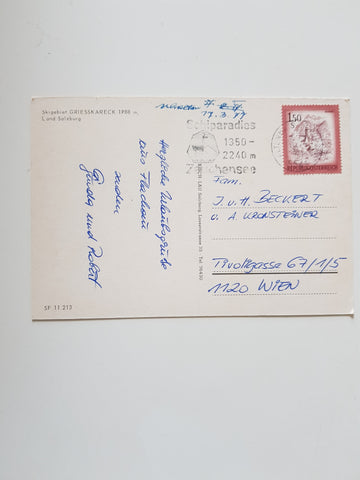 Skigebiet GRIESSKARECK 1988 m,
Land Salzburg
Schiparadies
1350 -
2240 m
Zauchensee
1,50
REPUBLIK ÖSTERREICH
Herzliche Urlaubsgrüße
aus Flachau
senden
Gerda und Robert
Fam.
J. u. H. BECKERT
u. A. KRONSTEINER
Tivoligasse 67/1/5
1120 WIEN
SP 11 213